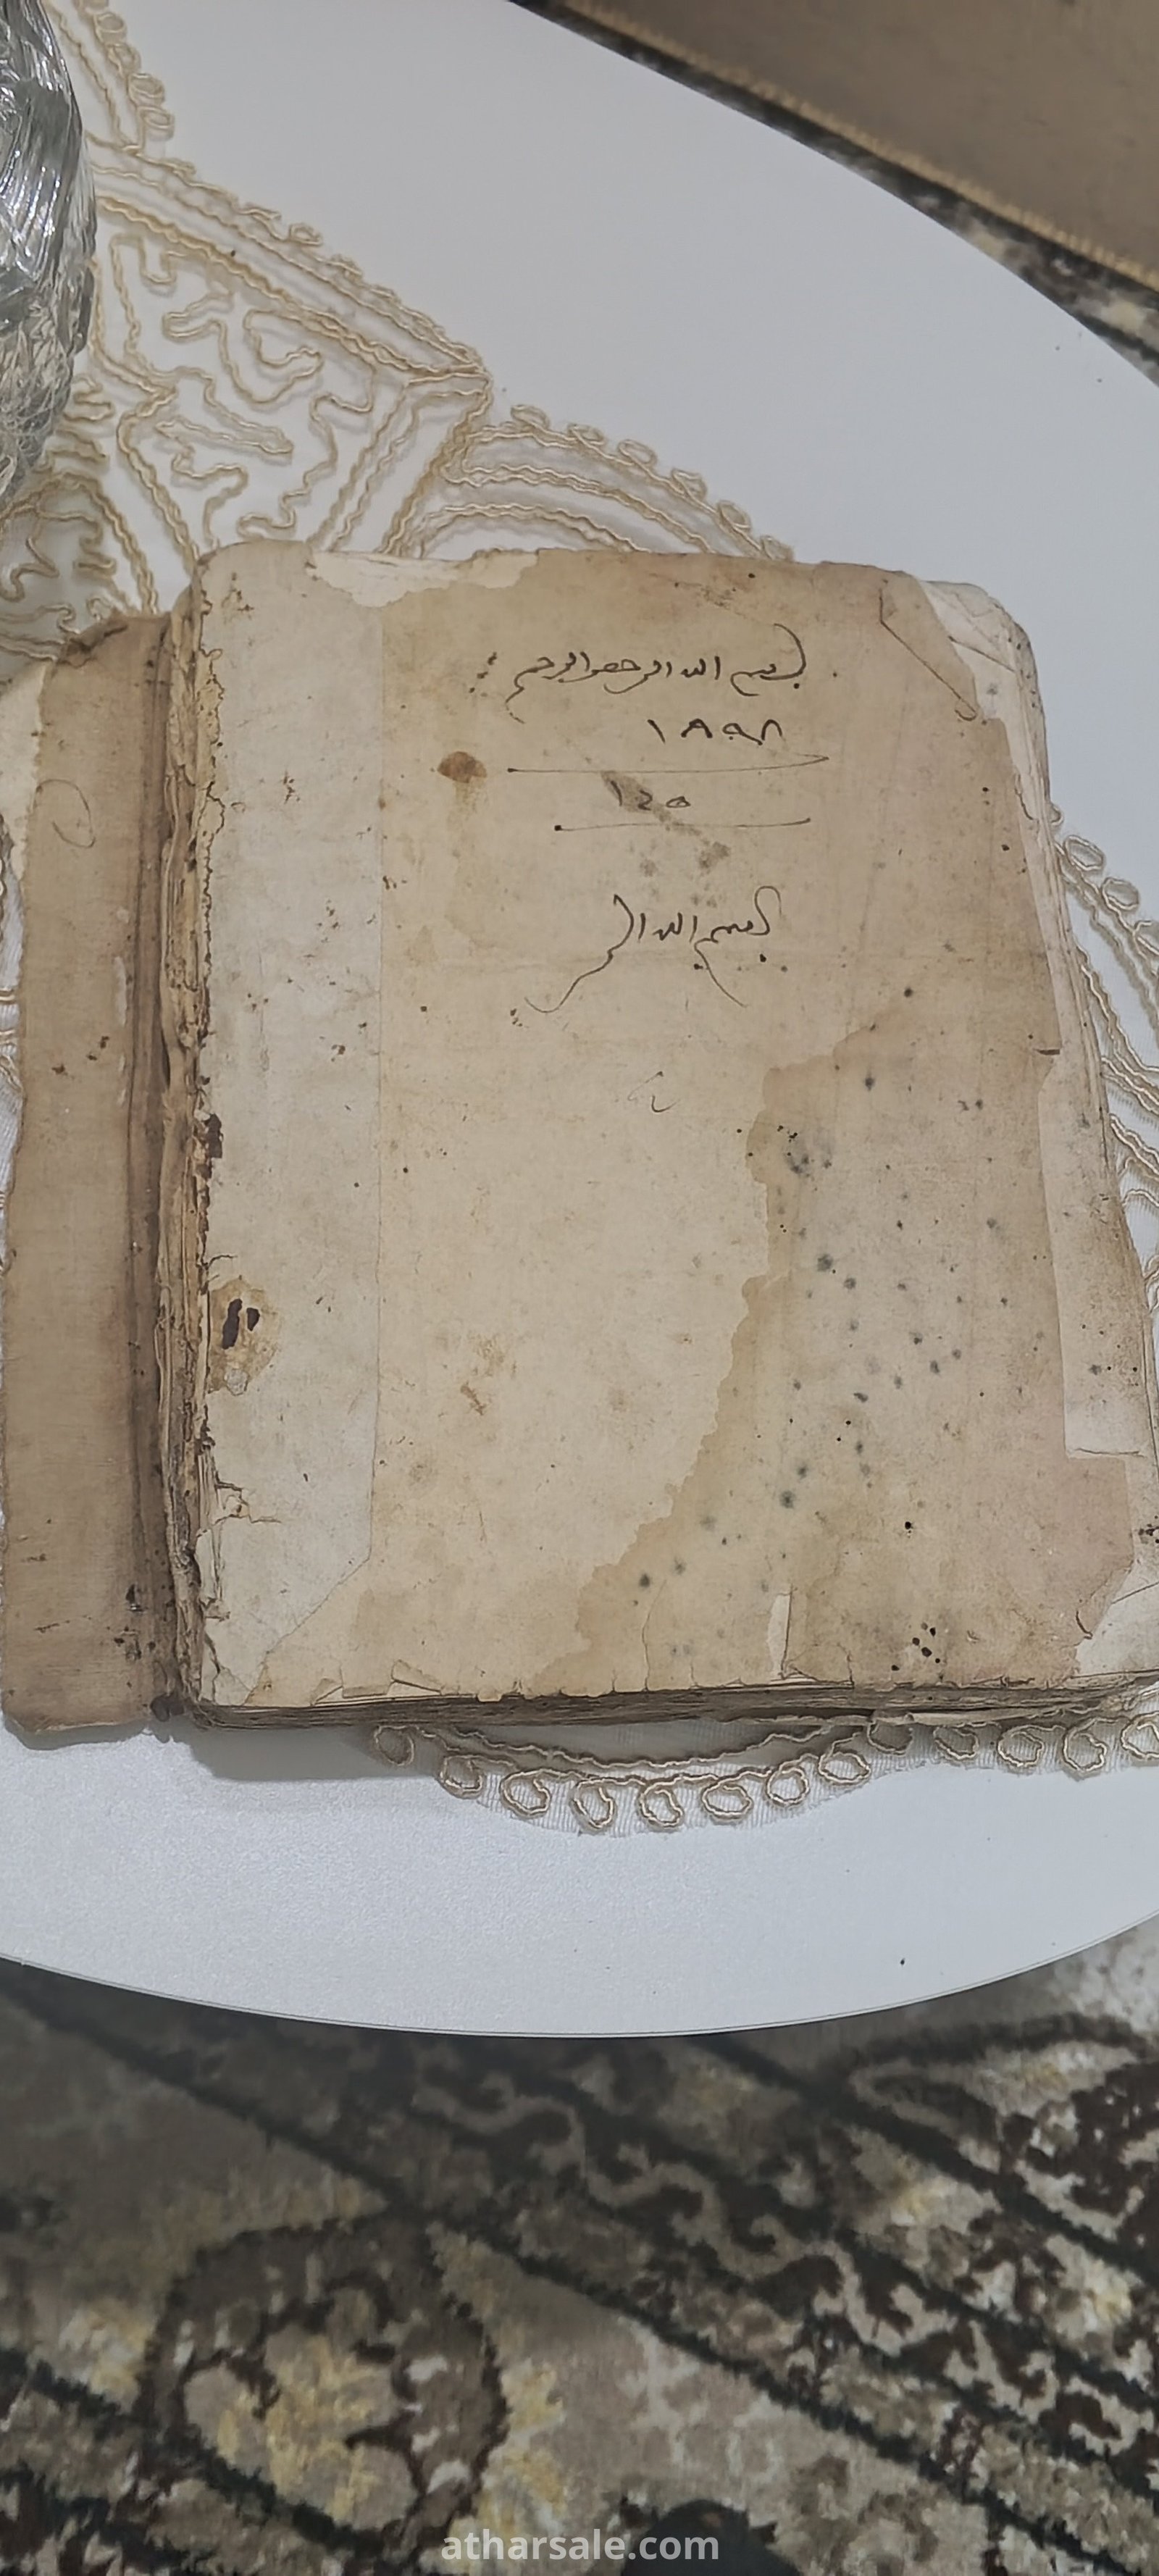 بسم الله الرحمن الرحيم
١٨٩٨
١٤٥
بسم الله الر
atharsale.com